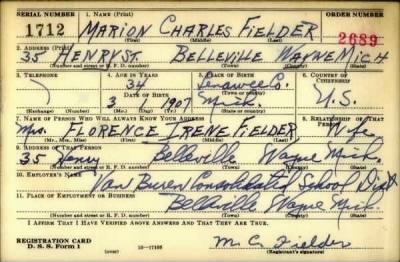 SERIAL NUMBER 1. NAME (Print) ORDER NUMBER
1712 MARION CHARLES FIELDER 2689
(First) (Middle) (Last)
2. ADDRESS (Print)
35 HENRY ST BELLEVILLE WAYNE MICH
(Number and street or R. F. D. number) (Town) (County) (State)
3. TELEPHONE 4. AGE IN YEARS 5. PLACE OF BIRTH 6. COUNTRY OF CITIZENSHIP
34 Lenawee Co.
DATE OF BIRTH (Town or county)
3 1907 Mich. U.S.
(Exchange) (Number) (Mo.) (Day) (Yr.) (State or country)
7. NAME OF PERSON WHO WILL ALWAYS KNOW YOUR ADDRESS 8. RELATIONSHIP OF THAT PERSON
Mrs. FLORENCE IRENE FIELDER Wife
(Mr., Mrs., Miss) (First) (Middle) (Last)
9. ADDRESS OF THAT PERSON
35 Henry Belleville Wayne Mich.
(Number and street or R. F. D. number) (Town) (County) (State)
10. EMPLOYER'S NAME
Van Buren Consolidated School Dist.
11. PLACE OF EMPLOYMENT OR BUSINESS
Belleville Wayne Mich
(Number and street or R. F. D. number) (Town) (County) (State)
I AFFIRM THAT I HAVE VERIFIED ABOVE ANSWERS AND THAT THEY ARE TRUE.
REGISTRATION CARD
D. S. S. Form 1 16—17105 M. C. Fielder
(Registrant's signature)